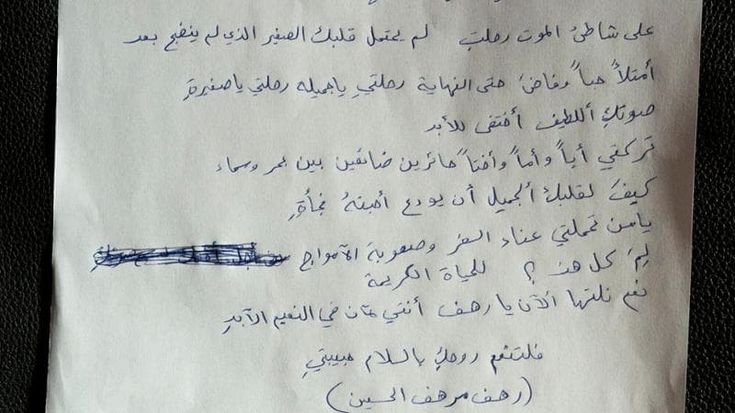 على شاطئ الموت رحلتِ لم يحتمل قلبك الصغير الذي لم ينضج بعد
أمتلأ حباً وفاضَ حتى النهاية رحلتي ياجميله رحلتي ياصغيرةِ
صوتكِ أللطيف أختفى للأبد
تركتي أباً وأماً وأختاً حائرين ضائعين بين بحر وسماء
كيفَ لقلبك ألجميل أن يودع أحبتهُ فجأةِ
يامن تحملتي عناء السفر وصعوبة الآمواج
لِمَ كل هذ ؟ للحياة الكريمة
نعم نلتها ألآن يا رهف أنتي بمان في النعيم الآبدِ
فلتنعم روحكِ بالسلام حبيبتيِ
(رهف مرهف الحسين)